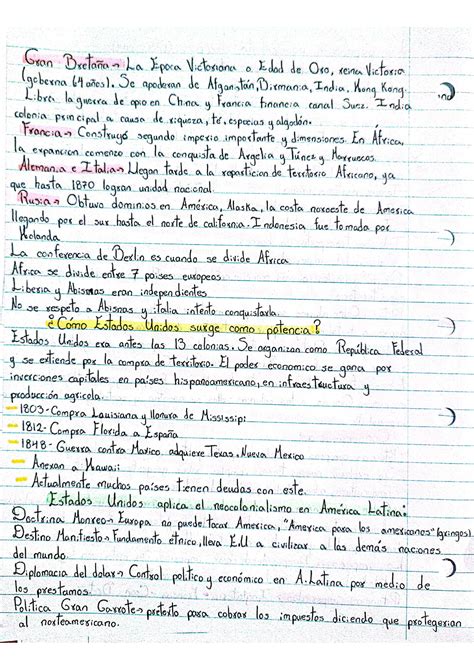 Gran Bretaña→ La Epoca Victoriana o Edad de Oro, reina Victoria
(goberna 64 años). Se apoderan de Afganstán, Dirmania, India, Hong Kong.
Libra la guerra de opio en China y Francia financia canal Suez. India
colonia principal a causa de riqueza, té, especias y algodón.
Francia→ Construye segundo imperio importante y dimensiones. En África,
la expancion comenzo con la conquista de Argelia y Túnez y Marruecos.
Alemania e Italia→ Llegan tarde a la reparticion de territorio Africano, ya
que hasta 1870 logran unidad nacional
Rusia→ Obtuvo dominios en América, Alaska, la costa noroeste de America
llegando por el sur hasta el norte de california. Indonesia fue tomada por
Holanda
La conferencia de Berlin es cuando se divide Africa
Africa se divide entre 7 paises europeos
Liberia y Abismas eran independientes
No se respeto a Abisnas y italia intento conquistarla.
¿Cómo Estados Unidos surge como potencia?
Estados Unidos era antes las 13 colonias. Se organizan como República Federal
y se extiende por la compra de territorio. El poder economico se gana por
inverciones capitales en países hispanoamericano, en infraestructura y
producción agricola.
- 1803- Compra Louisiana y llanura de Mississipi
- 1812- Compra Florida a España
- 1848- Guerra contra Mexico adquiere Texas, Nueva Mexico
- Anexan a Hawaii
- Actualmente muchos países tienen deudas con este.
Estados Unidos aplica el neocolonialismo en América Latina:
Doctrina Monroe→ Europa no puede tocar America, "America para los americanos" (gringos).
Destino Manifiesto→ Fundamento étnico, lleva E.U a civilizar a las demás naciones
del mundo
Diplomacia del dolar→ Control politico y económico en A.Latina por medio de
los prestamos.
Politica Gran Garrote→ pretexto para cobrar los impuestos diciendo que protegerian
al norteamericano.